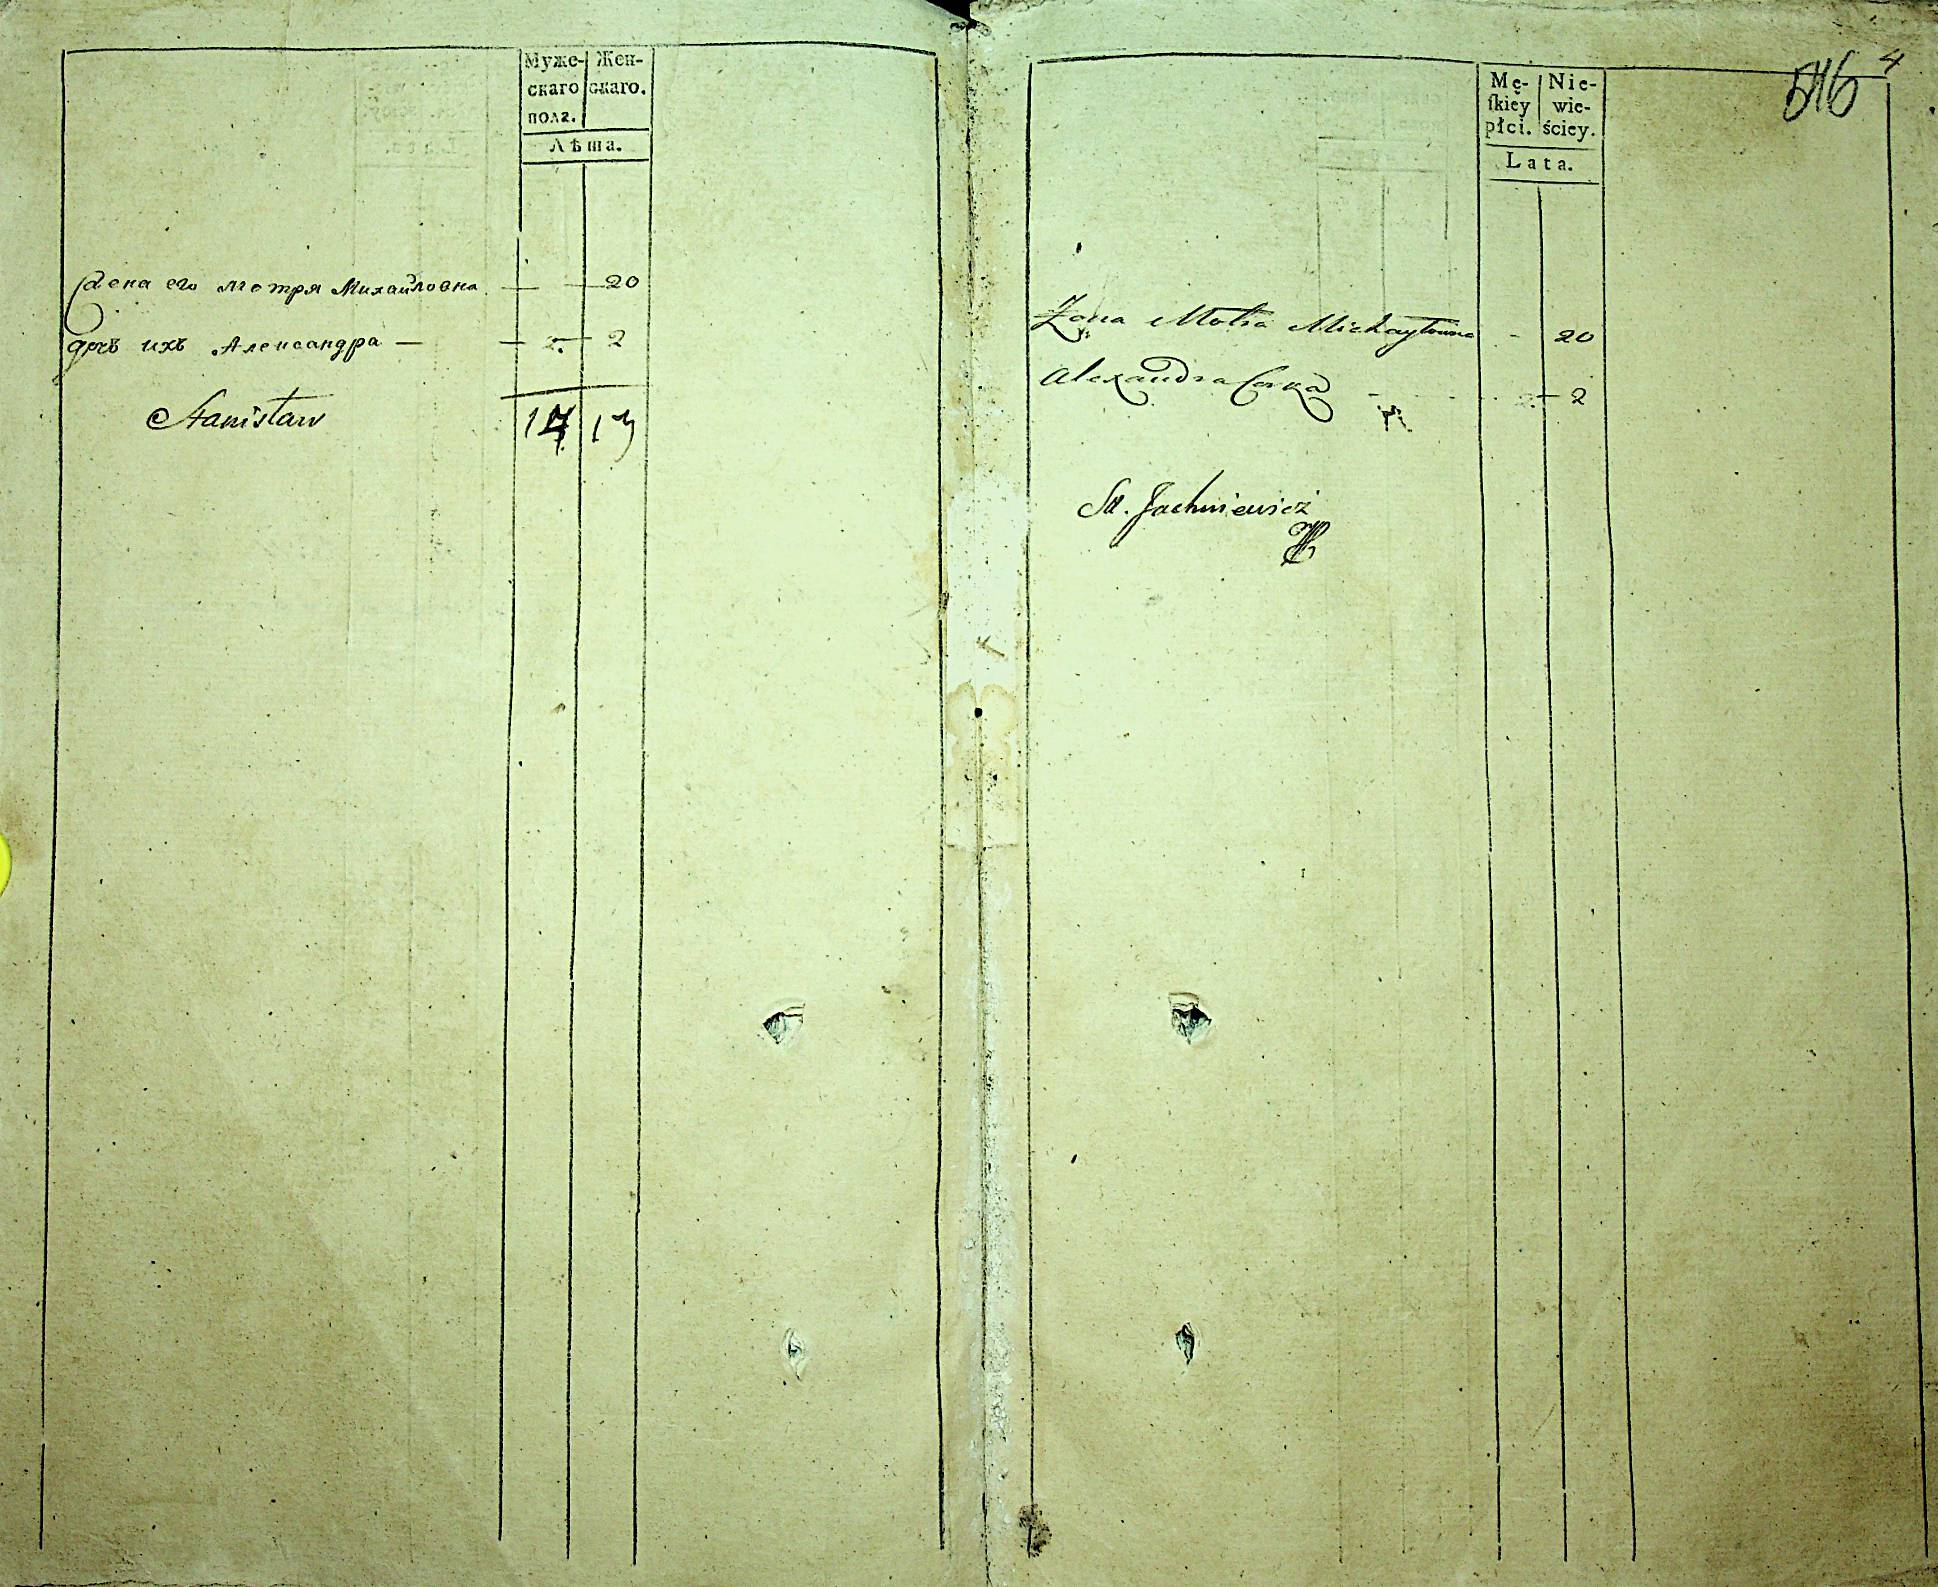 Муже-
скаго
полꙋ.
Жен-
скаго.
Лѣта.
Жена его Мотря Михайловна 20
дочь ихъ Александра — 2
Stanisław 17 13
4
Mę-
ſkiey
płci.
Nie-
wie-
ściey.
Lata.
Żona Motra Michayłowna - 20
Alexandra Corka 2
St. Jachniewicz